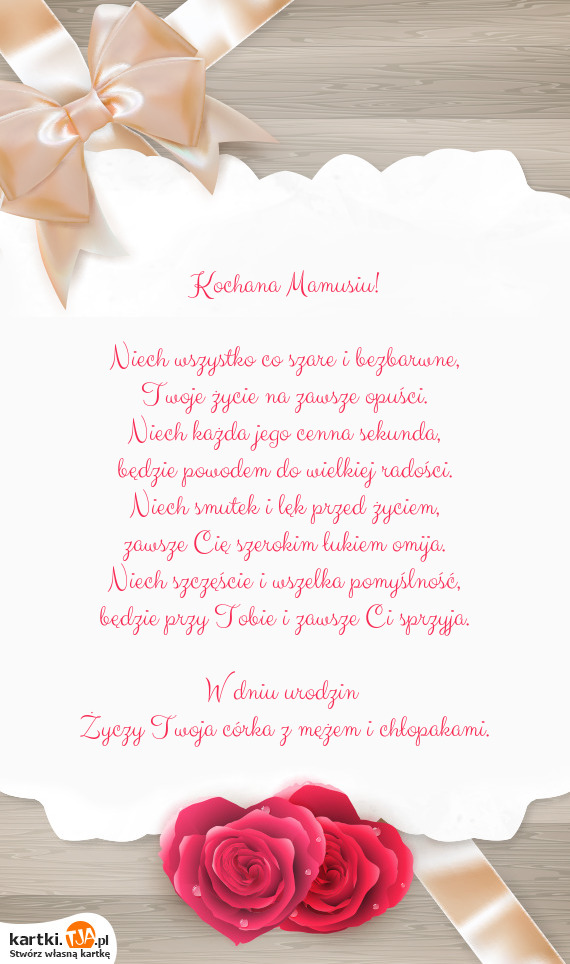 Kochana Mamusiu!
Niech wszystko co szare i bezbarwne,
Twoje życie na zawsze opuści.
Niech każda jego cenna sekunda,
będzie powodem do wielkiej radości.
Niech smutek i lęk przed życiem,
zawsze Cię szerokim łukiem omija.
Niech szczęście i wszelka pomyślność,
będzie przy Tobie i zawsze Ci sprzyja.
W dniu urodzin
Życzy Twoja córka z mężem i chłopakami.
kartki.TJA.pl
Stwórz własną kartkę